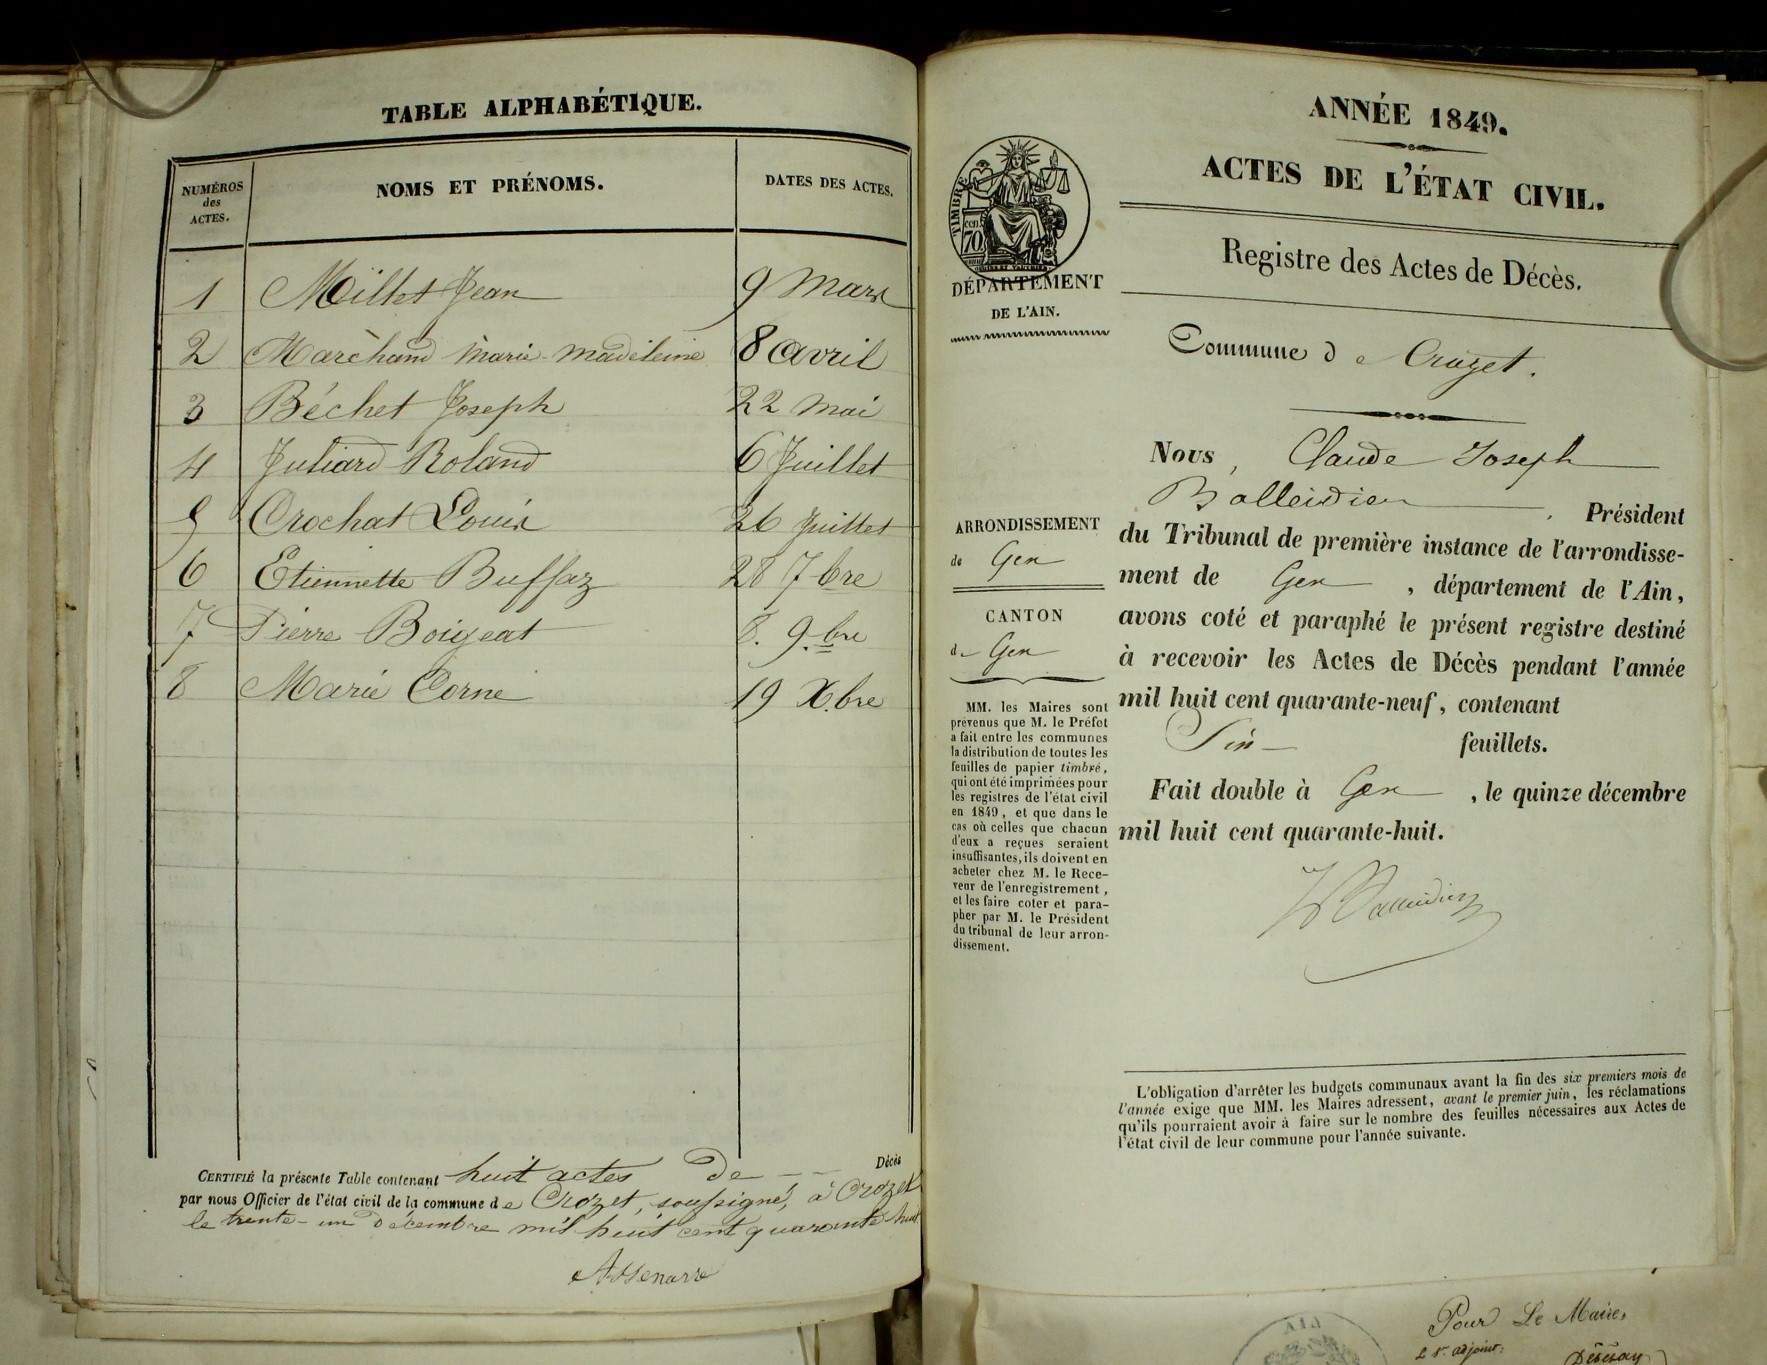 TABLE ALPHABÉTIQUE.
NUMÉROS
des
ACTES.
NOMS ET PRÉNOMS.
DATES DES ACTES.
1 Millet Jean 9 Mars
2 Marchand Marie-Madeleine 8 Avril
3 Béchet Joseph 22 Mai
4 Juliard Roland 6 Juillet
5 Crochat Louis 26 Juillet
6 Etiennette Buffaz 28 7bre
7 Pierre Boigeat 8. 9.bre
8 Marie Corne 19 X.bre
CERTIFIÉ la présente Table contenant huit actes De Décès
par nous Officier de l'état civil de la commune de Crozet, soussigné, à Crozet
le trente-un Décembre mil huit cent quarante huit
ANNÉE 1849.
ACTES DE L'ÉTAT CIVIL.
Registre des Actes de Décès.
TIMBRE
70
cen.
DÉPARTEMENT
DE L'AIN.
Commune de Crozet.
Nous, Claude Joseph
Balleidier, Président
du Tribunal de première instance de l'arrondisse-
ment de Gex, département de l'Ain,
avons coté et paraphé le présent registre destiné
à recevoir les Actes de Décès pendant l'année
mil huit cent quarante-neuf, contenant
Six feuillets.
Fait double à Gex, le quinze décembre
mil huit cent quarante-huit.
Balleidier
ARRONDISSEMENT
de Gex
CANTON
de Gex
MM. les Maires sont
prévenus que M. le Préfet
a fait entre les communes
la distribution de toutes les
feuilles de papier timbré,
qui ont été imprimées pour
les registres de l'état civil
en 1849, et que dans le
cas où celles que chacun
d'eux a reçues seraient
insuffisantes, ils doivent en
acheter chez M. le Rece-
veur de l'enregistrement,
et les faire coter et para-
pher par M. le Président
du tribunal de leur arron-
dissement.
L'obligation d'arrêter les budgets communaux avant la fin des six premiers mois de
l'année exige que MM. les Maires adressent, avant le premier juin, les réclamations
qu'ils pourraient avoir à faire sur le nombre des feuilles nécessaires aux Actes de
l'état civil de leur commune pour l'année suivante.
AIN
Pour Le Maire,
adjoint: